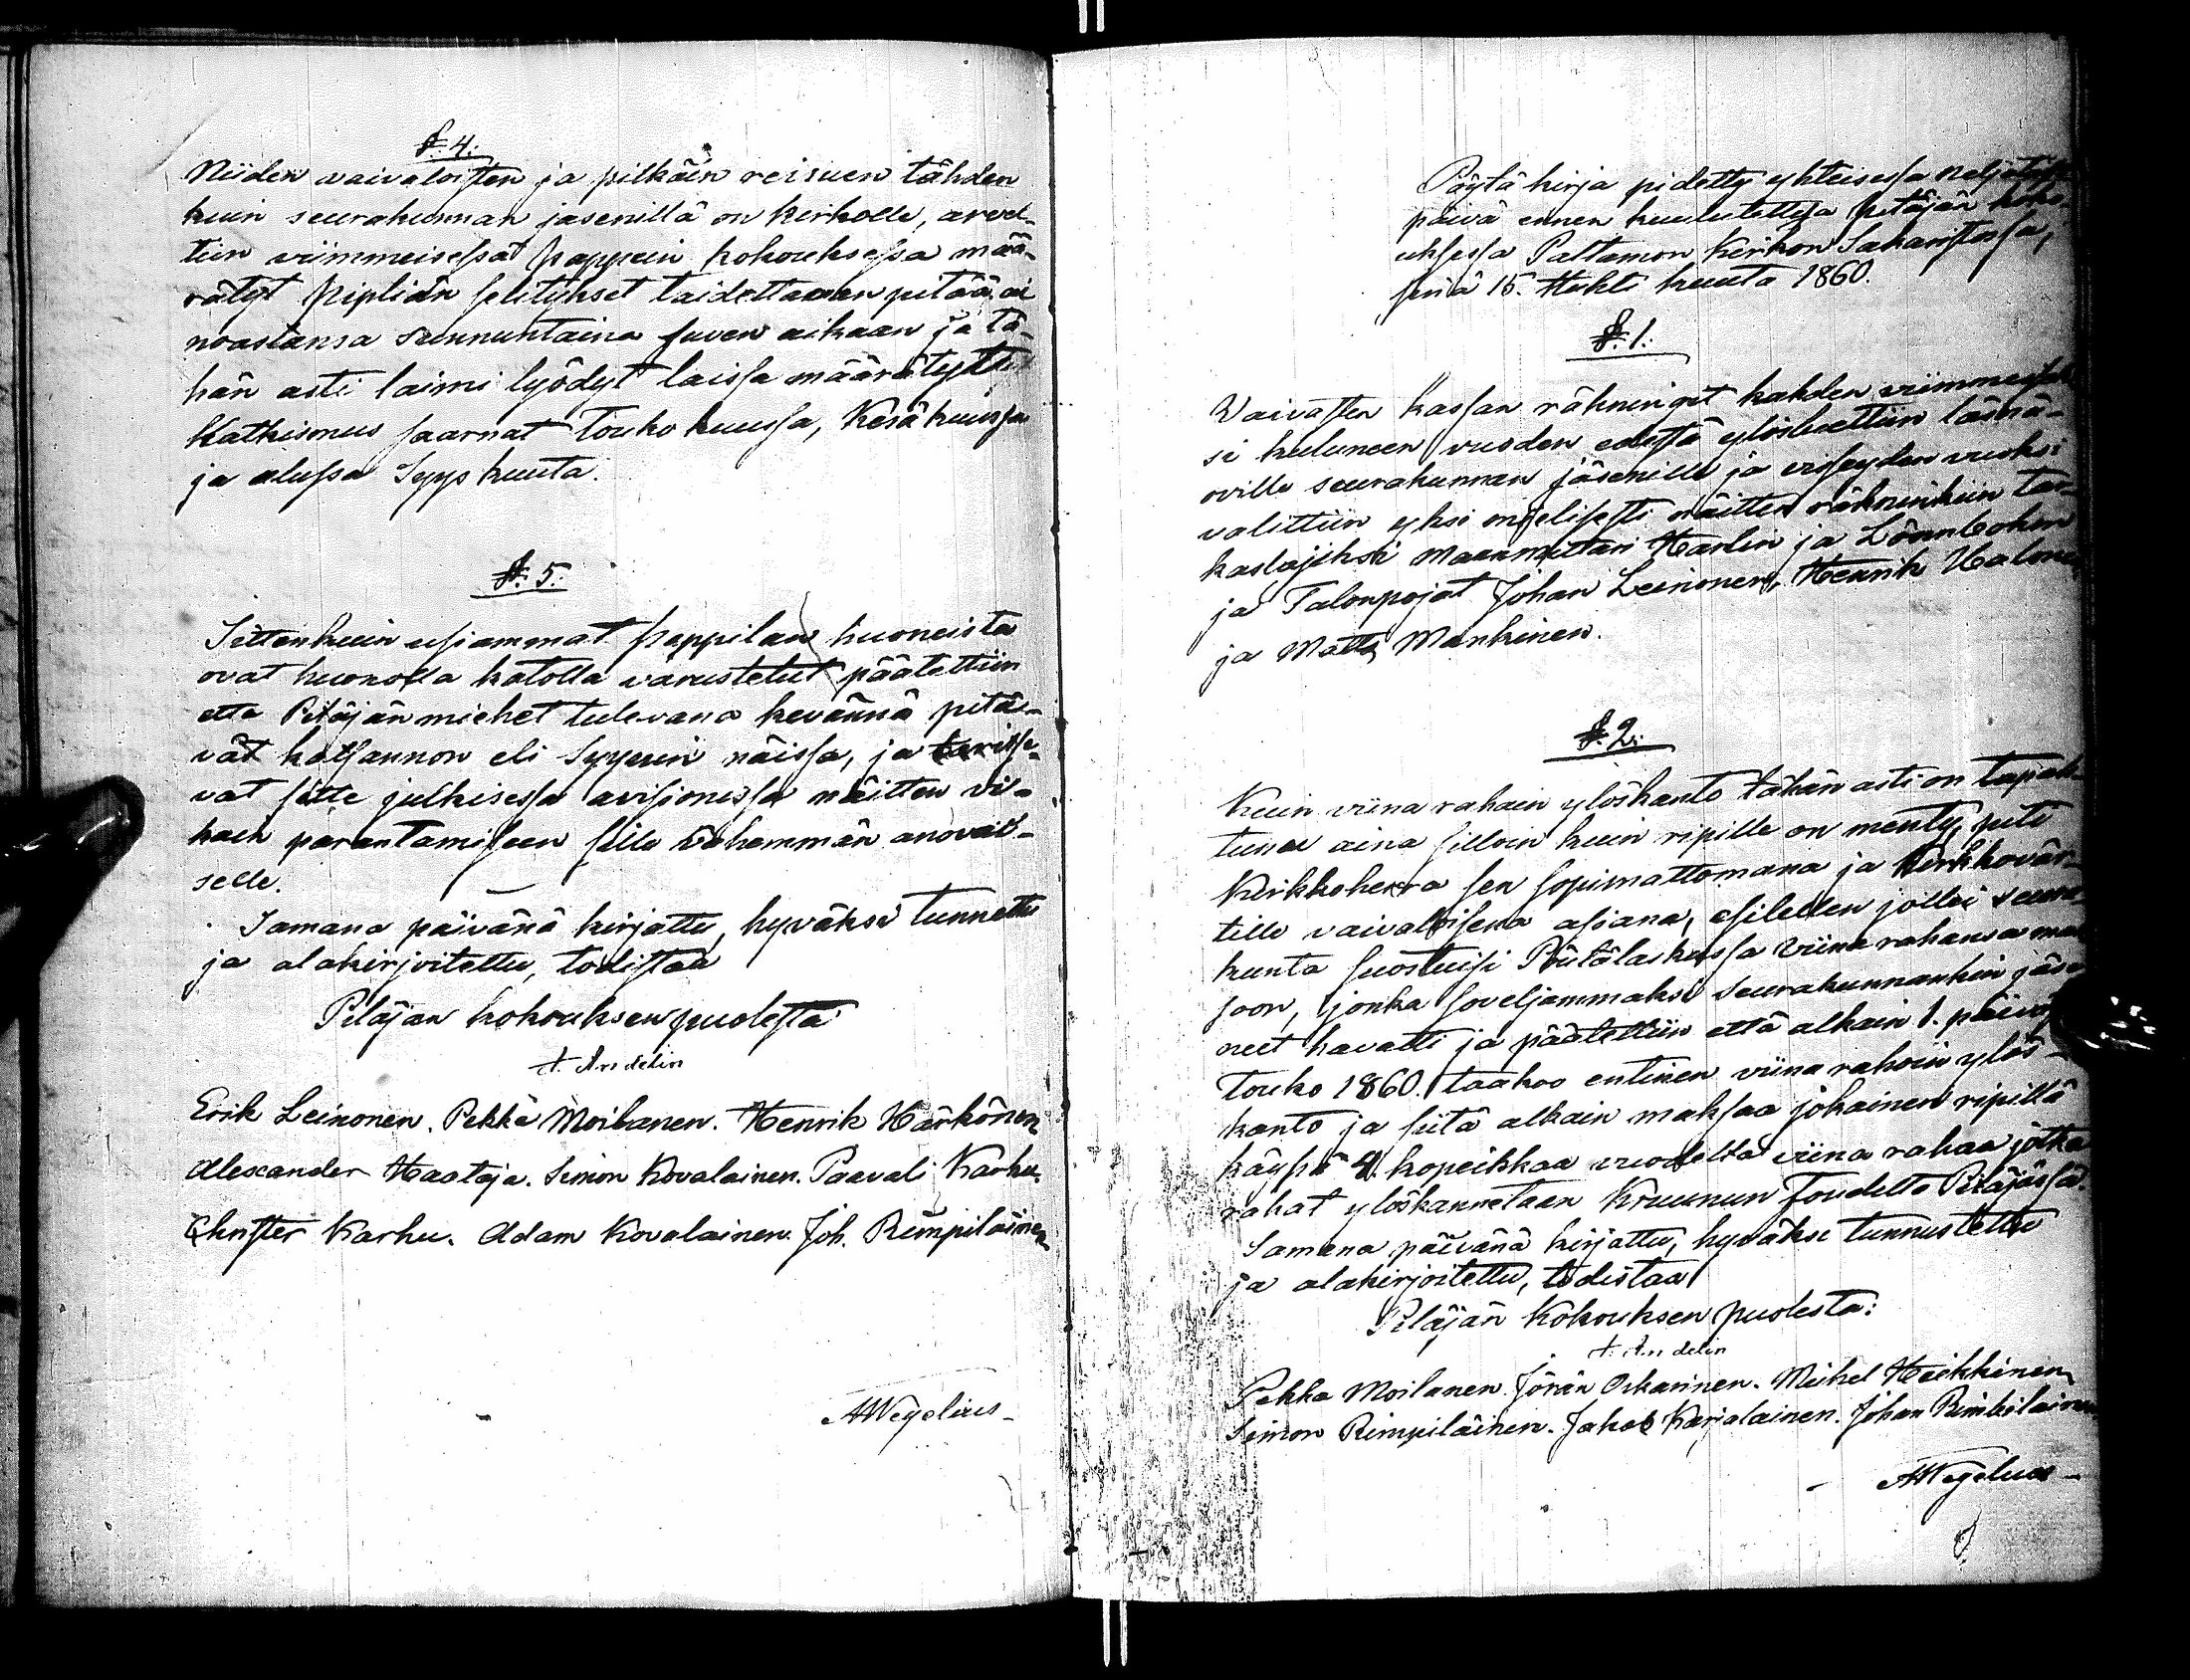 §. 4.
Niiden waivaloisten ja pitkäin reisuen tähden
kuin seurakunnan jäsenillä on kirkolle, arvel-
tiin viimmeisessä pappein kokouksessa mää-
rätyt Piplian selitykset taidettavan pitää ai
noastansa sunnuntaina suven aikaan ja tä-
hän asti laimi lyödyt laissa määrätyt
Katkismus saarnat Touko kuussa, Kesäkuussa
ja alussa Syys kuuta.
§. 5.
Sittenkuin usiammat pappilan huoneista
ovat huonolla katolla varustetut päätettiin
että Pitäjän miehet tulevana kevännä pitä-
vät katsannon eli Syynin näissä, ja
vat sitte julkisessa avisionissa näitten vi-
kain parantamiseen sille vähemmän anovai-
selle.
Samana päivänä kirjattu, hyväksi tunnettu
ja alakirjoitettu, todistaa
Pitäjän kokouksen puolesta
A. Andelin
Erik Leinonen. Pekka Moilanen. Henrik Härkönen
Alexander Haataja. Simon Kovalainen. Paavali Karhu.
Christer Karhu. Adam Kovalainen. Joh. Rimpiläinen
AWegelius
Pöytä kirja pidetty yhteisessä neljätoista
päivä ennen kuulutetussa pitäjän koko-
uksessa Paltamon Kirkon Sakaristossa,
sinä 15. Huhti kuuta 1860.
§. 1.
Waivasten kassan räkningit kahden viimmeis
si kuluneen vuoden edestä ylösluettiin läsnä-
oville seurakunnan jäsenille ja visseyden vuoksi
valittiin yksi mielisesti näitten räkninkiin tar-
kastajiksi Maanmittari Harlin ja Lönnbohm
ja Talonpojat Johan Leinonen, Henrik Halonen
ja Matts Mankinen.
§. 2.
Kuin viina rahain ylöskanto tähän asti on tapah-
tunut aina silloin kuin ripille on menty, piti
Kirkkoherra sen sopimattomana ja Kirkkovär-
tille vaivaloisena asiana, esitellen jollei seura-
kunta suostuisi Pöütälaskussa viina rahansa mak
soon, jonka soveljammaksi seurakunnankin jäse-
net havatti ja päätettiin että alkain 1. päivä
Touko 1860. taakoo entinen viina rahoin ylös-
kanto ja siitä alkain maksaa jokainen ripillä
käypä 4. kopeikkaa vuodelta viina rahaa jotka
rahat ylöskannetaan Kruunun foudetta Pitäjässä.
Samana päivänä kirjattu, hyväksi tunnustettu
ja alakirjoitettu, todistaa
Pitäjän Kokouksen puolesta:
A. Andelin
Pekka Moilanen. Jörän Oikarinen. Mikel Heikkinen
Simon Rimpiläinen. Jakob Karjalainen. Johan Rimbiläinen
AWegelius